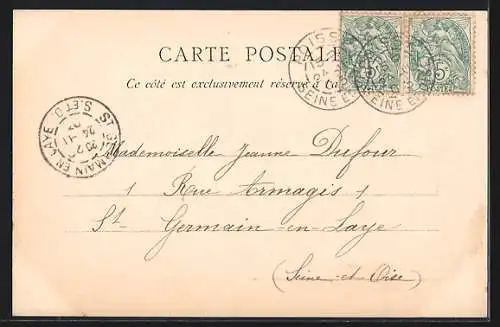 CARTE POSTALE
Ce côté est exclusivement réservé à l'a
POISS
SEINE E
5
5
ST GERMAIN EN LAYE S. ET O.
24
11
Mademoiselle Jeanne Dufour
1 Rue Armagis 1
St. Germain-en-Laye
(Seine-et-Oise)